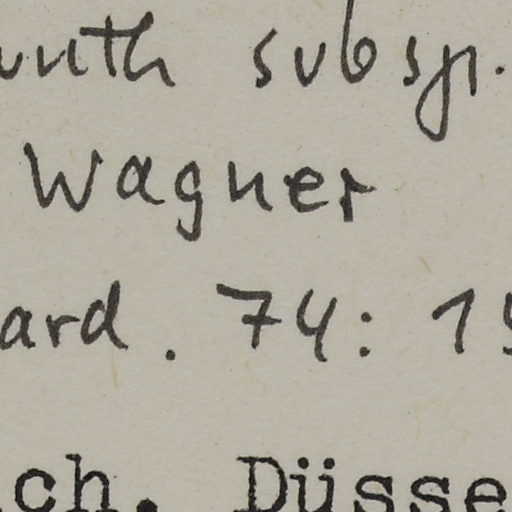 unth subsp.
Wagner
ard. 74: 19
ch. Düsse